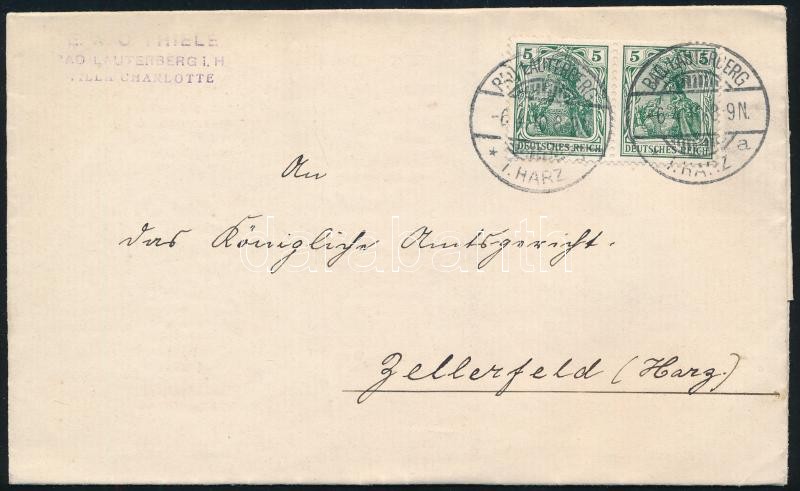 THIELE
BAD LAUTERBERG i. H.
VILLA CHARLOTTE
5 5
DEUTSCHES REICH
5 5
DEUTSCHES REICH
BAD LAUTERBERG
* i. HARZ
BAD LAUTERBERG
8-9N.
* a
i. HARZ
An
das Königliche Amtsgericht.
darabanth
Zellerfeld (Harz)